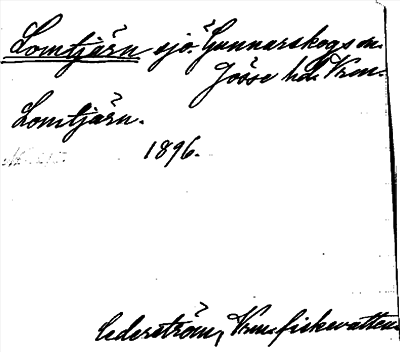 Lomtjärn sjö. Gunnarskogs sn.
Jösse hd. Vrm.
Lomtjärn.
1896.
Cederström, Vrm. fiskevatten